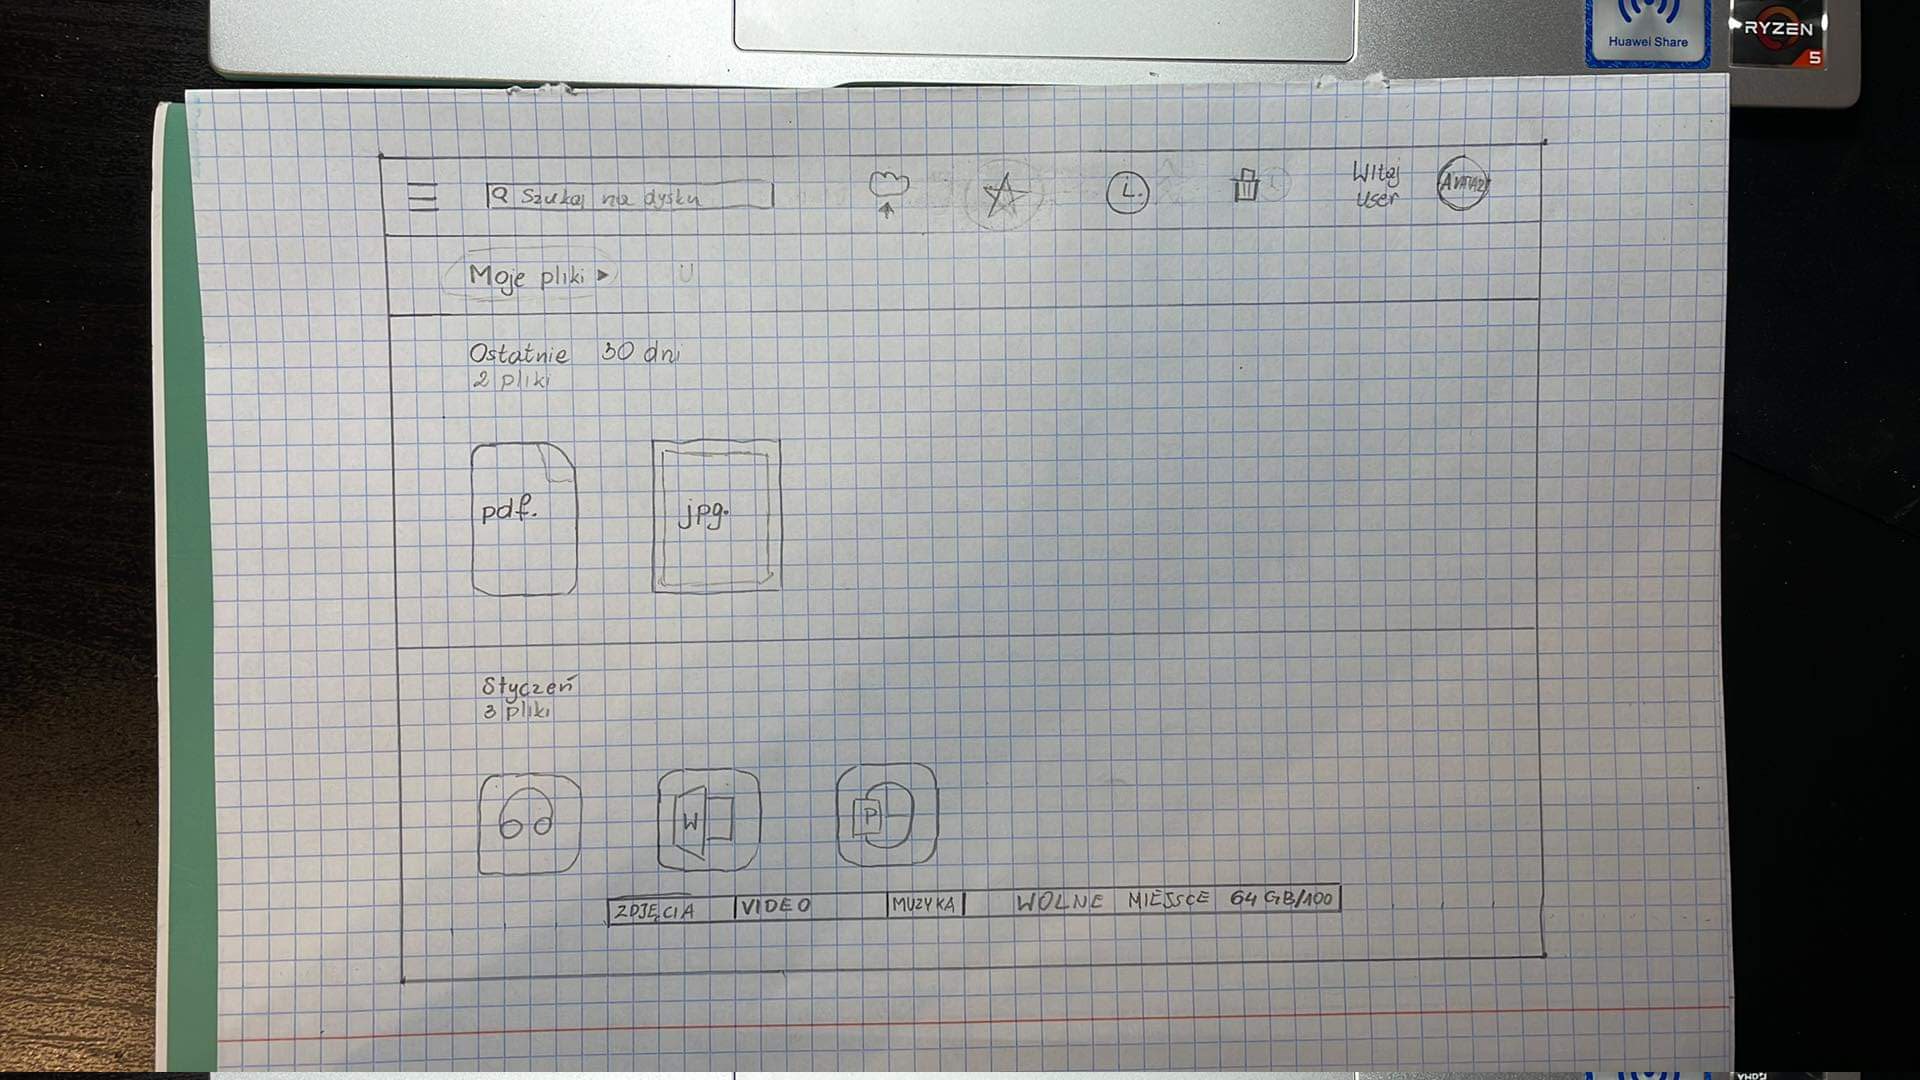 Huawei Share
RYZEN
5
Szukaj na dysku
L.
Witaj
user
AVATAR
Moje pliki
U
Ostatnie 30 dni
2 pliki
pdf.
jpg.
Styczeń
3 pliki
W
P
ZDJĘCIA
VIDEO
MUZYKA
WOLNE MIEJSCE 64 GB/100